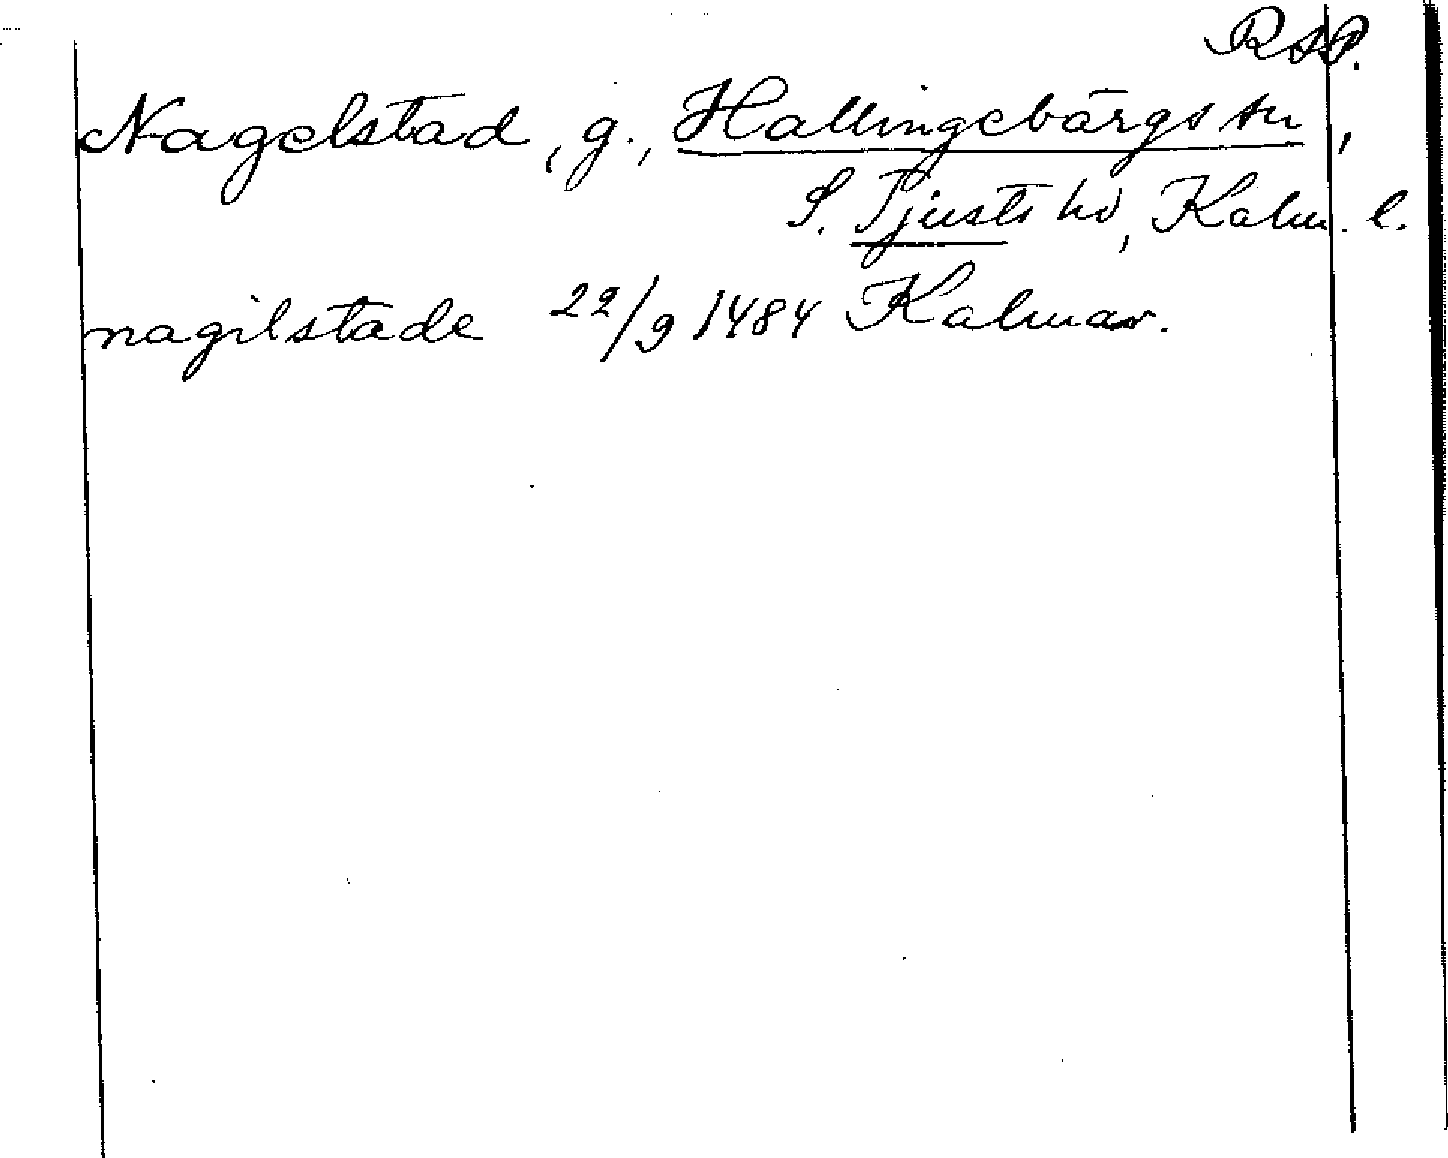 RAP.
Nagelstad, g., Hallingebärgs sn,
S. Tjusts hd, Kalm. l.
nagilstade 22/9 1484 Kalmar.